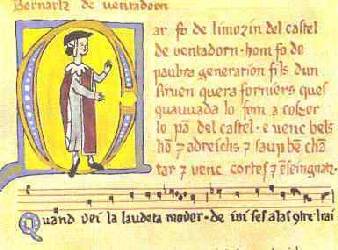 Bernartz de ventadorn
ar fo de limozin del castel
de ventadorn. hom fo de
paubra generation fils dun
siruen quera forniers ques
lo forn a cozer
lo pã del castel. e venc bels
hõ ⁊ adreichs ⁊ saup bẽ chã
tar ⁊ venc cortes ⁊ enseingnatz.
Quand vei la laudeta mover. de ioi sas alas